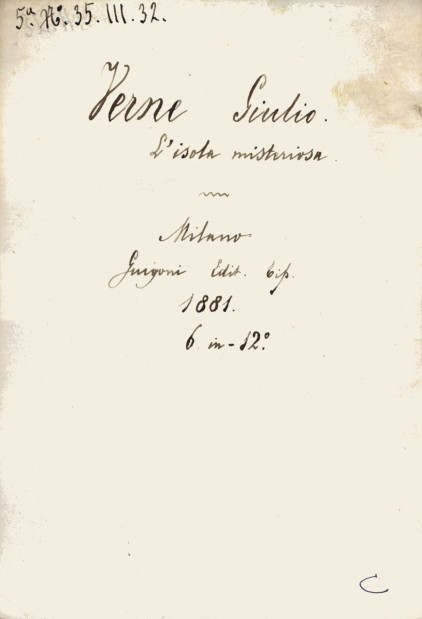 5ª. Nº. 35. III. 32.
Verne Giulio.
L'isola misteriosa.
Milano
Guigoni Edit. Tip.
1881.
6 in-12º.
C